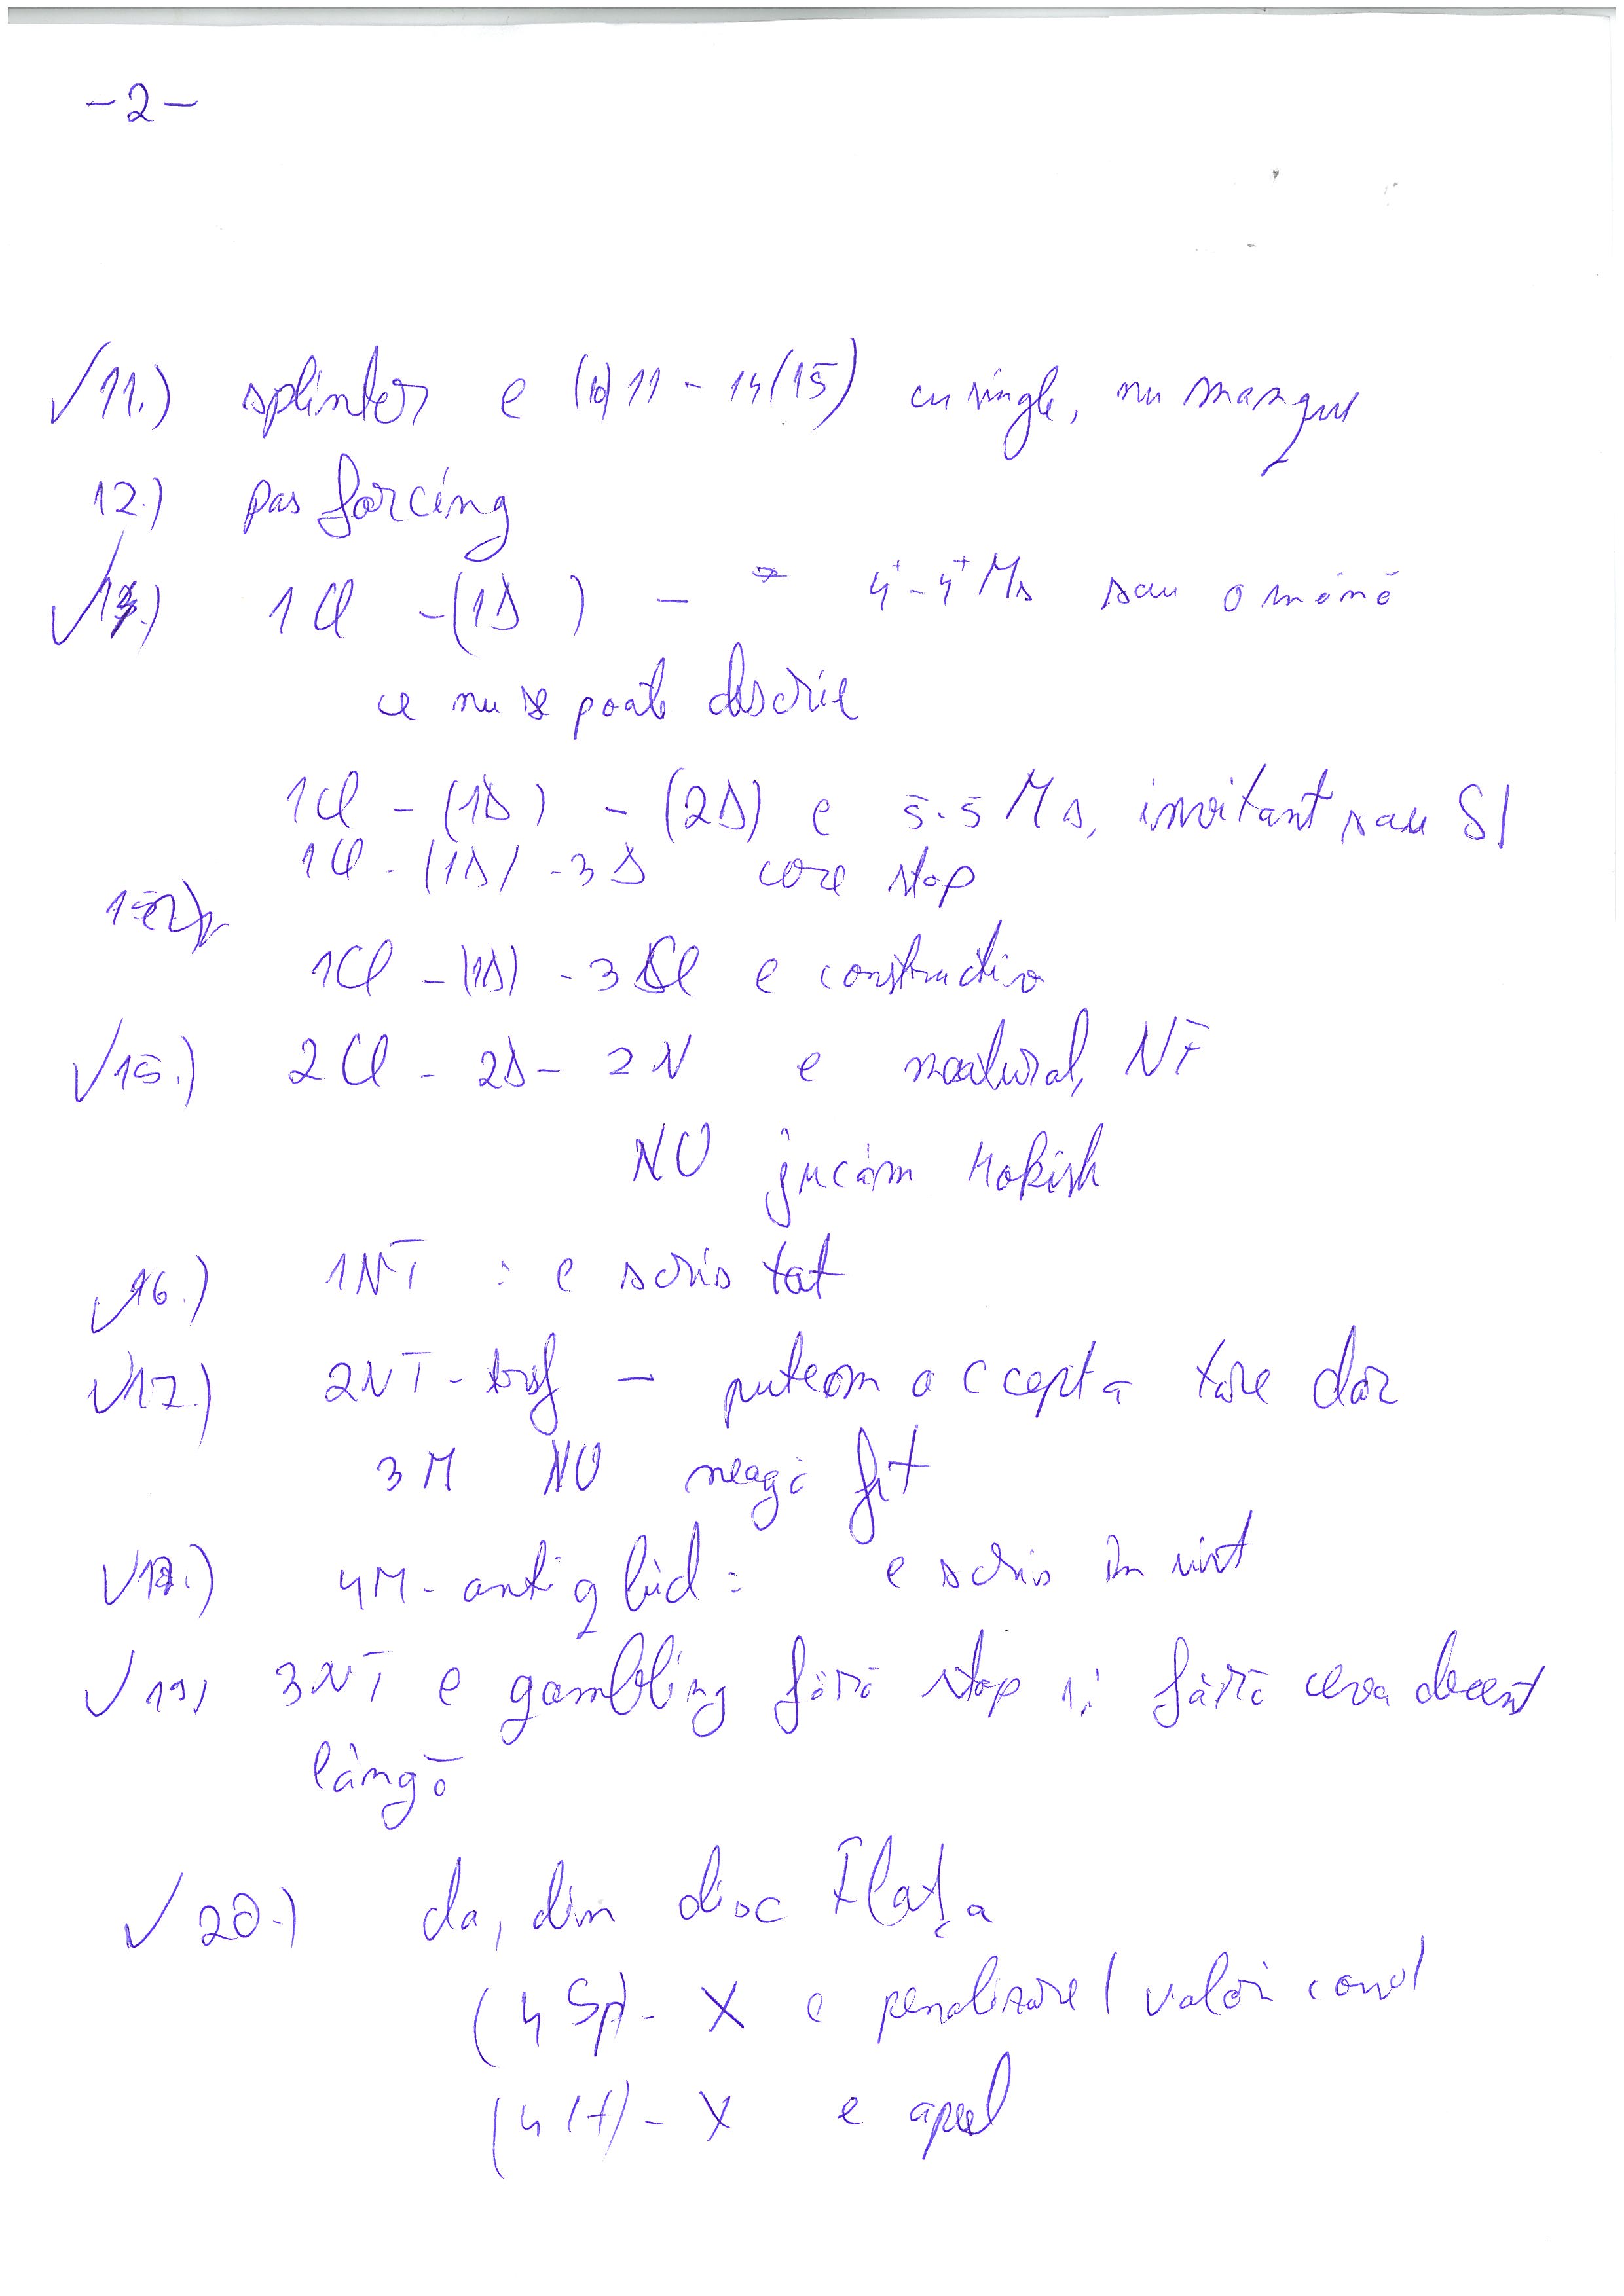 -2-
√11.) splinter e (10)11 - 14(15) cu single, nu
12.) pas forcing
√13.) 1Cl -(1D) - * 4⁺-4⁺Ms sau o mână
ce nu se poate descrie
1Cl - (1D) - (2D) e 5-5 Ms, invitant sau SI
1Cl - (1D) - 3D cere stop
1Cl - (1D) - 3Cl e constructiv
√15.) 2Cl - 2D - 2N e natural, NF
NU jucăm Kokish
√16.) 1NT : e scris tot
√17.) 2NT - trsf - putem accepta tare dar
3M NU neagă fit
√18.) 4M - anti q bid : e scris în
√19) 3NT e gambling fără stop și fără ceva decent
lângă
√20.) da, din disc
(4Sp) - X e penalizare / valori
(4H) - X e apel